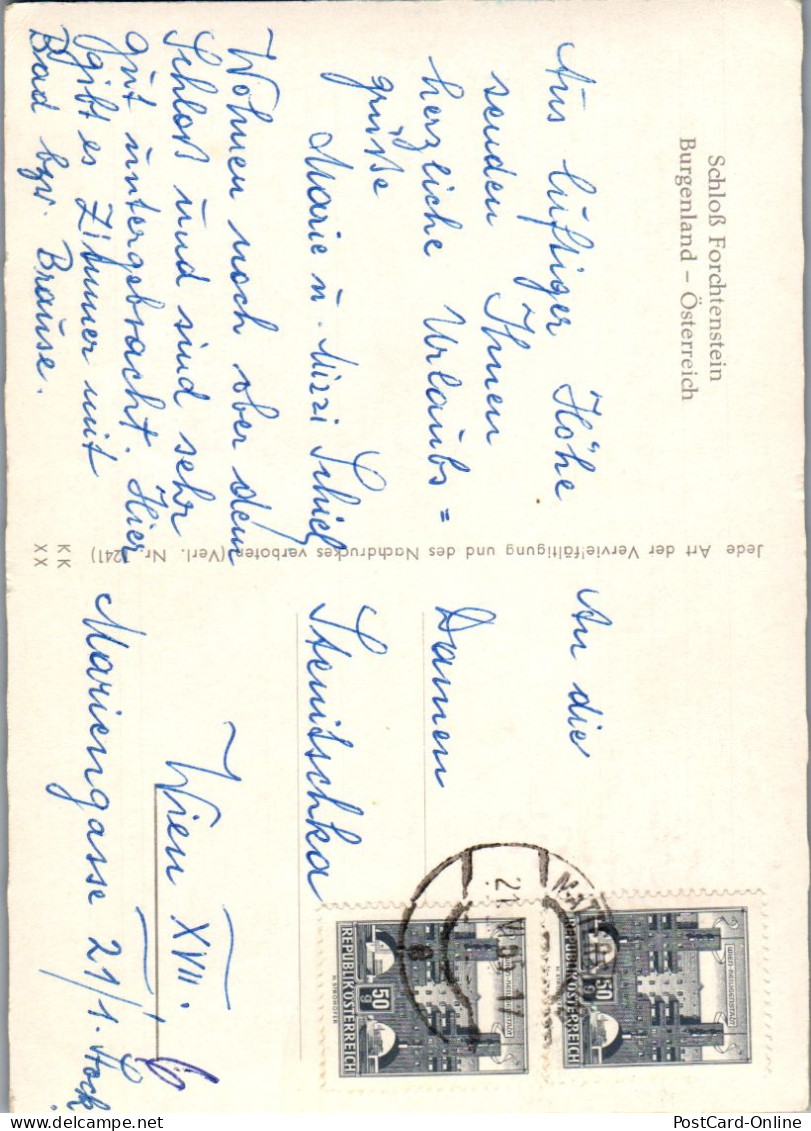 Schloß Forchtenstein
Burgenland – Österreich
Aus luftiger Höhe
senden Ihnen
herzliche Urlaubs=
grüße
Marie u. Mizzi Schiel
Wohnen noch ober dem
Schloß und sind sehr
gut untergebracht. Hier
gibt es Zimmer mit
Bad bzw. Brause.
Jede Art der Vervielfältigung und des Nachdruckes verboten (Verl. Nr. 1241)
KK
XX
An die
Damen
Stenitschka
Wien XVII.
Mariengasse 21/1. Stock
50 g
REPUBLIK ÖSTERREICH
WIEN-HEILIGENSTADT
50
REPUBLIK ÖSTERREICH
PostCard-Online